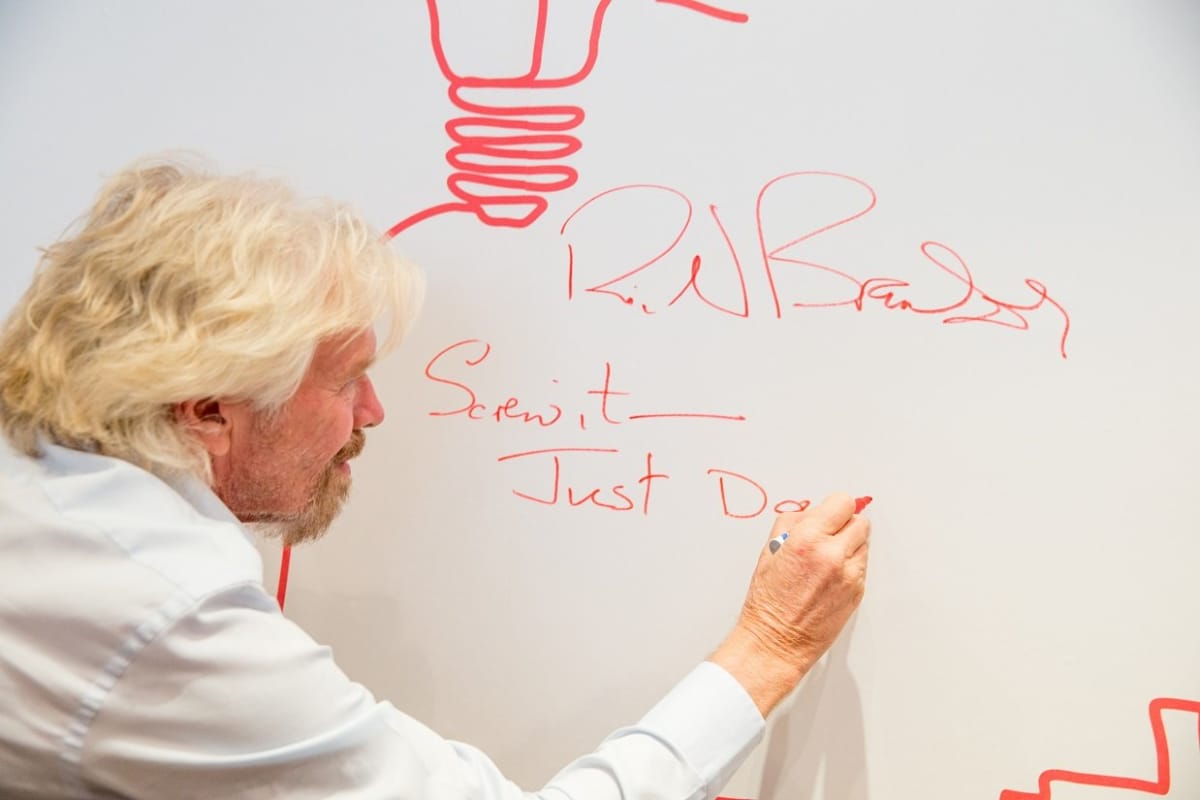 Richard Branson
Screw it —
Just Do